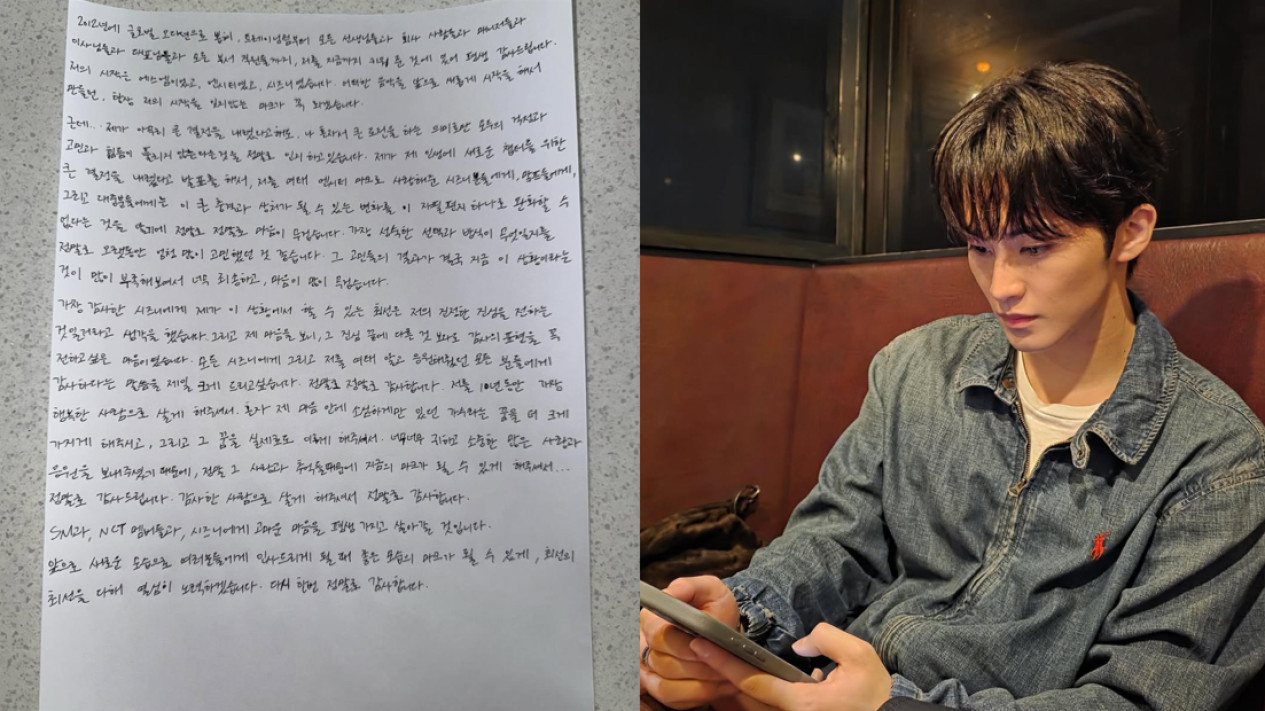 2012년에 글로벌 오디션으로 뽑혀, 트레이닝팀부터 모든 선생님들과 회사 사람들과 매니저들과
이사님들과 대표님들과 모든 부서 직원들까지, 저를 지금까지 키워 준 것에 있어 평생 감사드립니다.
저의 시작은 에스엠이었고, 엔시티였고, 시즈니였습니다. 어떠한 음악을 앞으로 새롭게 시작을 해서
만들던, 항상 저의 시작을 잊지않는 마크가 꼭 되겠습니다.
근데... 제가 아무리 큰 결정을 내렸다고해도, 나 혼자서 큰 도전을 하는 의미로만 모두의 걱정과
고민과 힘듦이 풀리지 않는다는것을 정말로 인지 하고있습니다. 제가 제 인생에 새로운 챕터를 위한
큰 결정을 내렸다고 발표를 해서, 저를 여태 엔시티 마크로 사랑해준 시즈니분들에게, 팬분들에게,
그리고 대중분들에게는 이 큰 충격과 상처가 될 수 있는 변화를 이 자필편지 하나로 완화할 수
없다는 것을 알기에 정말로 정말로 마음이 무겁습니다. 가장 성숙한 선택과 방식이 무엇일지를
정말로 오랫동안 엄청 많이 고민했던 것 같습니다. 그 고민들의 결과가 결국 지금 이 상황이라는
것이 많이 부족해보여서 너무 죄송하고, 마음이 많이 무겁습니다.
가장 감사한 시즈니에게 제가 이 상황에서 할 수 있는 최선은 저의 진정한 진심을 전하는
것일거라고 생각을 했습니다. 그리고 제 마음을 보니, 그 진심 끝에 다른 것 보다도 감사의 표현을 꼭
전하고싶은 마음이였습니다. 모든 시즈니에게 그리고 저를 여태 알고 응원해줬던 모든 분들에게
감사하다는 말씀을 제일 크게 드리고싶습니다. 정말로 정말로 감사합니다. 저를 10년동안 가장
행복한 사람으로 살게 해주셔서. 혼자 제 마음 안에 소심하게만 있던 가수라는 꿈을 더 크게
가지게 해주시고, 그리고 그 꿈을 실제로도 이루게 해주셔서. 너무너무 귀하고 소중한 많은 사랑과
응원을 보내주셨기 때문에, 정말 그 사랑과 추억들때문에 지금의 마크가 될 수 있게 해주셔서...
정말로 감사드립니다. 감사한 사람으로 살게 해주셔서 정말로 감사합니다.
SM과, NCT 멤버들과, 시즈니에게 고마운 마음을 평생 가지고 살아갈 것입니다.
앞으로 새로운 모습으로 여러분들에게 인사드리게 될 때 좋은 모습의 마크가 될 수 있게, 최선의
최선을 다해 열심히 노력하겠습니다. 다시 한번 정말로 감사합니다.